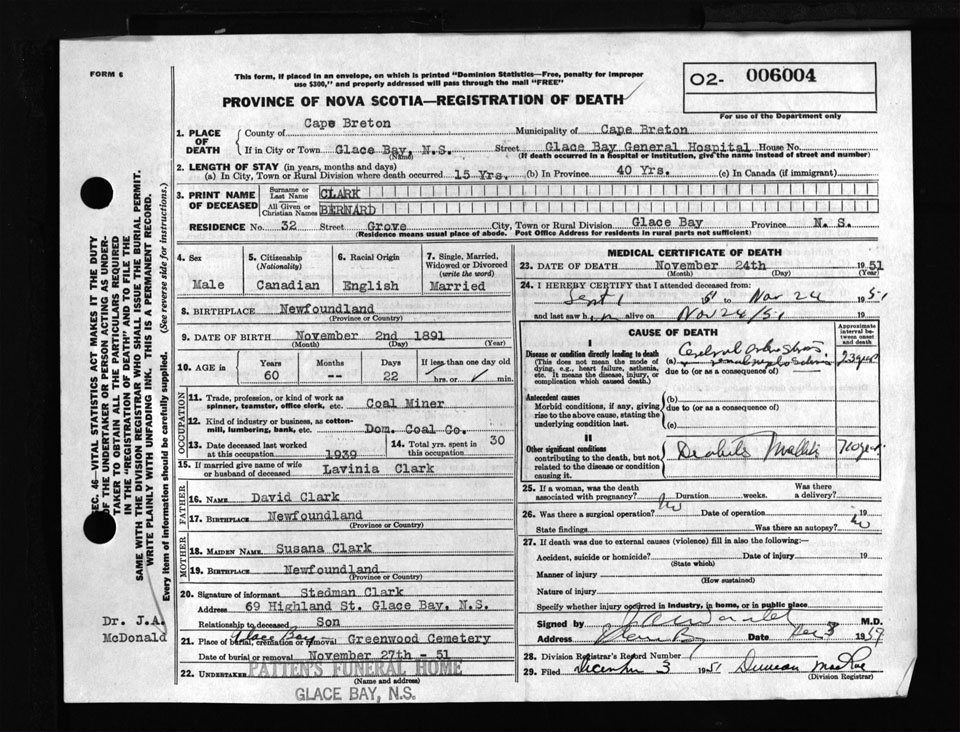 FORM 6
This form, if placed in an envelope, on which is printed "Dominion Statistics—Free, penalty for improper
use $300," and properly addressed will pass through the mail "FREE"
O2- 006004
For use of the Department only
PROVINCE OF NOVA SCOTIA—REGISTRATION OF DEATH
1. PLACE OF DEATH
County of Cape Breton Municipality of Cape Breton
If in City or Town Glace Bay, N.S. Street Glace Bay General Hospital House No.
(Name) (If death occurred in a hospital or institution, give the name instead of street and number)
2. LENGTH OF STAY (in years, months and days)
(a) In City, Town or Rural Division where death occurred 15 Yrs. (b) In Province 40 Yrs. (c) In Canada (if immigrant)
3. PRINT NAME OF DECEASED
Surname or Last Name CLARK
All Given or Christian Names BERNARD
RESIDENCE No. 32 Street Grove City, Town or Rural Division Glace Bay Province N. S.
(Residence means usual place of abode. Post Office Address for residents in rural parts not sufficient)
4. Sex
Male
5. Citizenship
(Nationality)
Canadian
6. Racial Origin
English
7. Single, Married,
Widowed or Divorced
(write the word)
Married
8. BIRTHPLACE Newfoundland
(Province or Country)
9. DATE OF BIRTH November 2nd 1891
(Month) (Day) (Year)
10. AGE in
Years Months Days If less than one day old
60 -- 22 hrs. or min.
OCCUPATION
11. Trade, profession, or kind of work as
spinner, teamster, office clerk, etc. Coal Miner
12. Kind of industry or business, as cotton-
mill, lumbering, bank, etc. Dom. Coal Co.
13. Date deceased last worked
at this occupation 1939
14. Total yrs. spent in
this occupation 30
15. If married give name of wife
or husband of deceased Lavinia Clark
FATHER
16. NAME David Clark
17. BIRTHPLACE Newfoundland
(Province or Country)
MOTHER
18. MAIDEN NAME Susana Clark
19. BIRTHPLACE Newfoundland
(Province or Country)
20. Signature of informant Stedman Clark
Address 69 Highland St. Glace Bay, N.S.
Relationship to deceased Son
Glace Bay
21. Place of burial, cremation or removal Greenwood Cemetery
Date of burial or removal November 27th - 51
22. UNDERTAKER PATTEN'S FUNERAL HOME
(Name and address)
GLACE BAY, N.S.
MEDICAL CERTIFICATE OF DEATH
23. DATE OF DEATH November 24th 1951
(Month) (Day) (Year)
24. I HEREBY CERTIFY that I attended deceased from:
Sept 1 51 to Nov 24 1951
and last saw him alive on Nov 24/51 19
CAUSE OF DEATH
Approximate
interval be-
tween onset
and death
I
Disease or condition directly leading to death
(This does not mean the mode of
dying, e.g., heart failure, asthenia,
etc. It means the disease, injury, or
complication which caused death.)
(a) Cerebral
due to (or as a consequence of)
Antecedent causes
Morbid conditions, if any, giving
rise to the above cause, stating the
underlying condition last.
(b)
due to (or as a consequence of)
(c)
II
Other significant conditions
contributing to the death, but not
related to the disease or condition
causing it.
25. If a woman, was the death
associated with pregnancy? No Duration weeks. Was there
a delivery?
26. Was there a surgical operation? Date of operation 19
State findings Was there an autopsy? No
27. If death was due to external causes (violence) fill in also the following:—
Accident, suicide or homicide? Date of injury 19
(State which)
Manner of injury
(How sustained)
Nature of injury
Specify whether injury occurred in industry, in home, or in public place
Signed by M.D.
Address Glace Bay Date Dec 3 19
28. Division Registrar's Record Number
29. Filed December 3 1951 Duncan MacRae
(Division Registrar)
SEC. 46—VITAL STATISTICS ACT MAKES IT THE DUTY
OF THE UNDERTAKER OR PERSON ACTING AS UNDER-
TAKER TO OBTAIN ALL THE PARTICULARS REQUIRED
IN THE "REGISTRATION OF DEATH" AND TO FILE THE
SAME WITH THE DIVISION REGISTRAR WHO SHALL ISSUE THE BURIAL PERMIT.
WRITE PLAINLY WITH UNFADING INK. THIS IS A PERMANENT RECORD.
Every item of information should be carefully supplied. (See reverse side for instructions.)
Dr. J.A.
McDonald